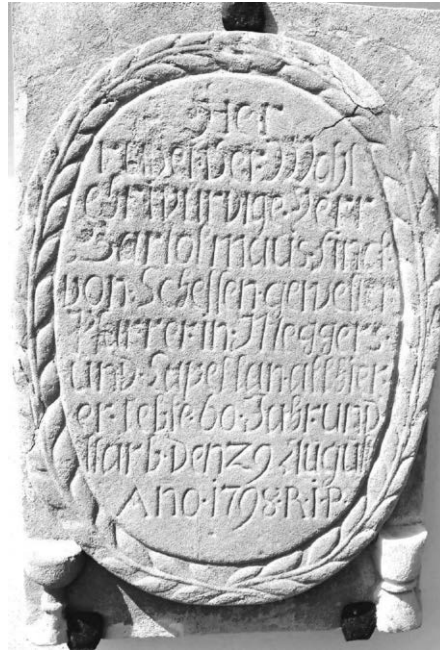 Hier
ruhet der Wohl
Ehrwürdige Herr
Bartolmaüs finck
von Schellen gewester
Pfarrer in Meggers
und Capellan allhier
er lebte 60 Jahr und
starb den 29 August
Ano 1798 R.I.P.